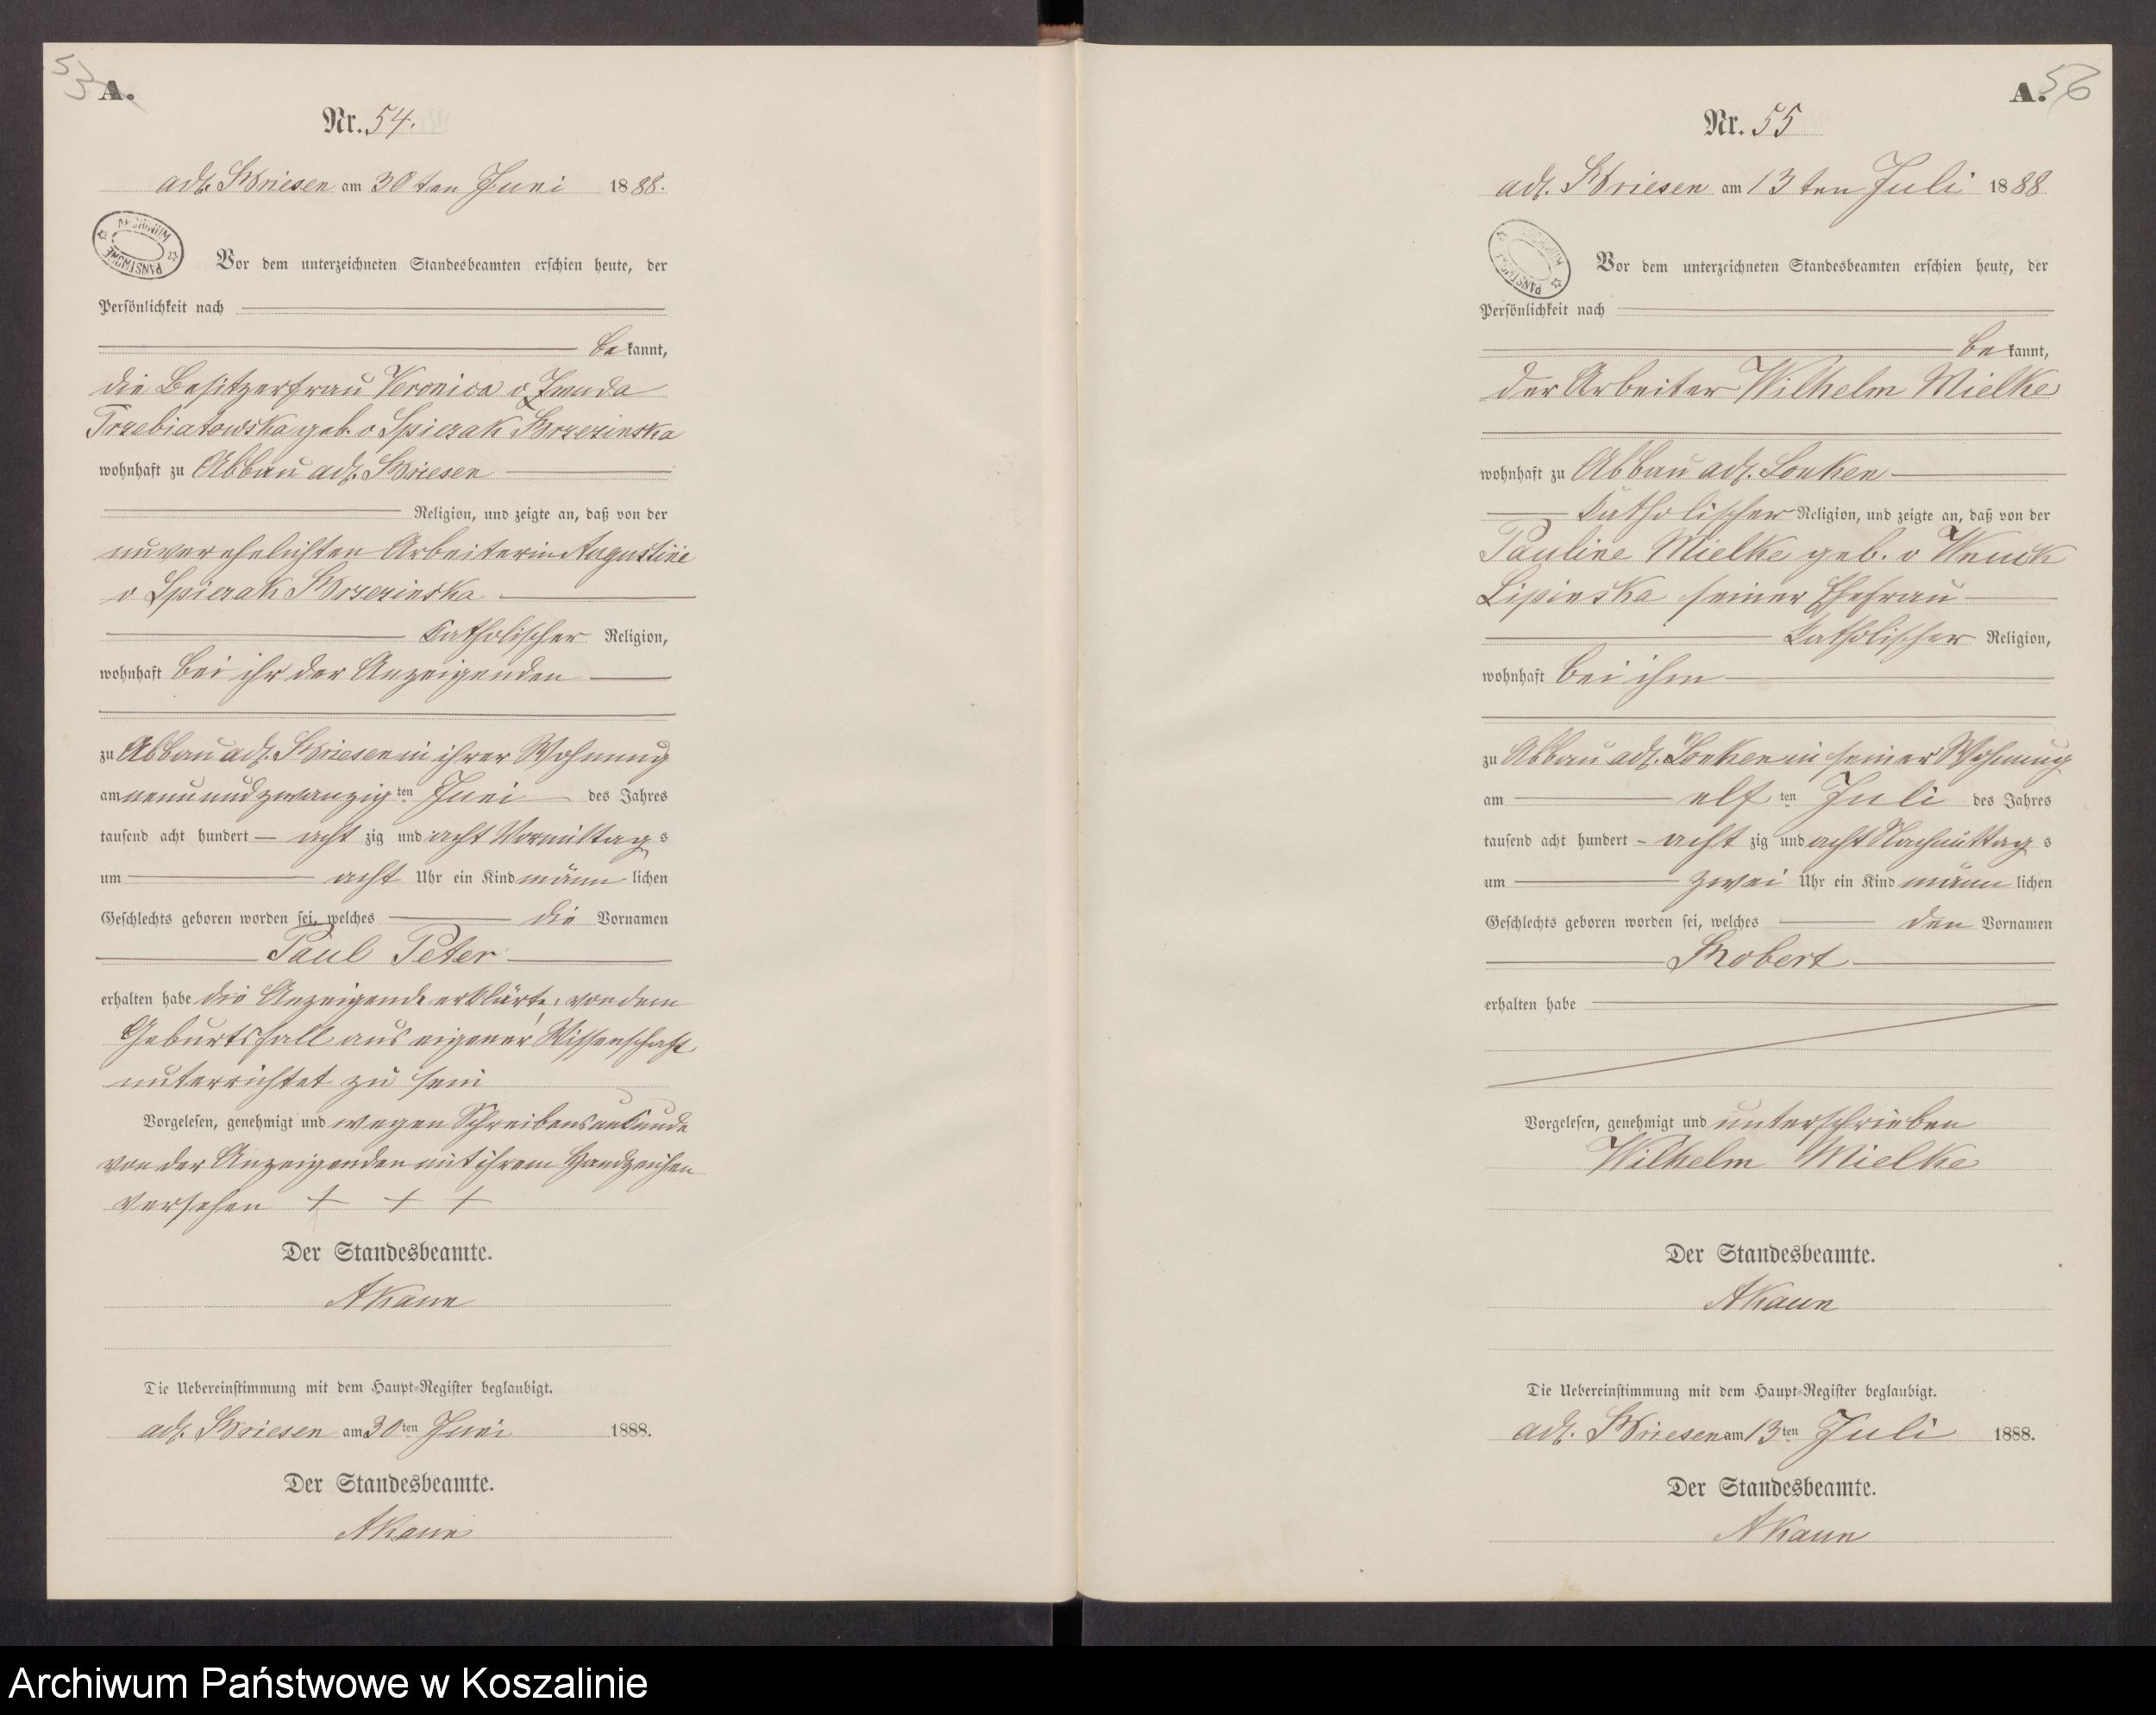 A.
Nr. 54.
adl. Briesen am 30ten Juni 1888.
ARCHIWUM PAŃSTWOWE
Vor dem unterzeichneten Standesbeamten erschien heute, der
Persönlichkeit nach
bekannt,
die Besitzerfrau Veronica v Zmuda
Trzebiatowska geb. v Spiczak Brzezinska
wohnhaft zu Abbau adl. Briesen
Religion, und zeigte an, daß von der
unverehelichten Arbeiterin Augustine
v Spiczak Brzezinska
katholischer Religion,
wohnhaft bei ihr der Anzeigenden
zu Abbau adl. Briesen in ihrer Wohnung
am neunundzwanzig ten Juni des Jahres
tausend acht hundert acht zig und acht Vormittag s
um acht Uhr ein Kind männ lichen
Geschlechts geboren worden sei, welches die Vornamen
Paul Peter
erhalten habe die Anzeigende erklärte, von dem
Geburtsfall aus eigener Wissenschaft
unterrichtet zu sein
Vorgelesen, genehmigt und wegen Schreibensunkunde
von der Anzeigenden mit ihrem Handzeichen
versehen + + +
Der Standesbeamte.
AKaun
Die Uebereinstimmung mit dem Haupt-Register beglaubigt.
adl. Briesen am 30ten Juni 1888.
Der Standesbeamte.
AKaun
A. 56
Nr. 55
adl. Briesen am 13ten Juli 1888
ARCHIWUM PAŃSTWOWE
Vor dem unterzeichneten Standesbeamten erschien heute, der
Persönlichkeit nach
bekannt,
der Arbeiter Wilhelm Mielke
wohnhaft zu Abbau adl. Lonken
katholischer Religion, und zeigte an, daß von der
Pauline Mielke geb. v Wnuck
Lipinska seiner Ehefrau
katholischer Religion,
wohnhaft bei ihm
zu Abbau adl. Lonken in seiner Wohnung
am elf ten Juli des Jahres
tausend acht hundert acht zig und acht Nachmittag s
um zwei Uhr ein Kind männ lichen
Geschlechts geboren worden sei, welches den Vornamen
Robert
erhalten habe
Vorgelesen, genehmigt und unterschrieben
Wilhelm Mielke
Der Standesbeamte.
AKaun
Die Uebereinstimmung mit dem Haupt-Register beglaubigt.
adl. Briesen am 13ten Juli 1888.
Der Standesbeamte.
AKaun
Archiwum Państwowe w Koszalinie